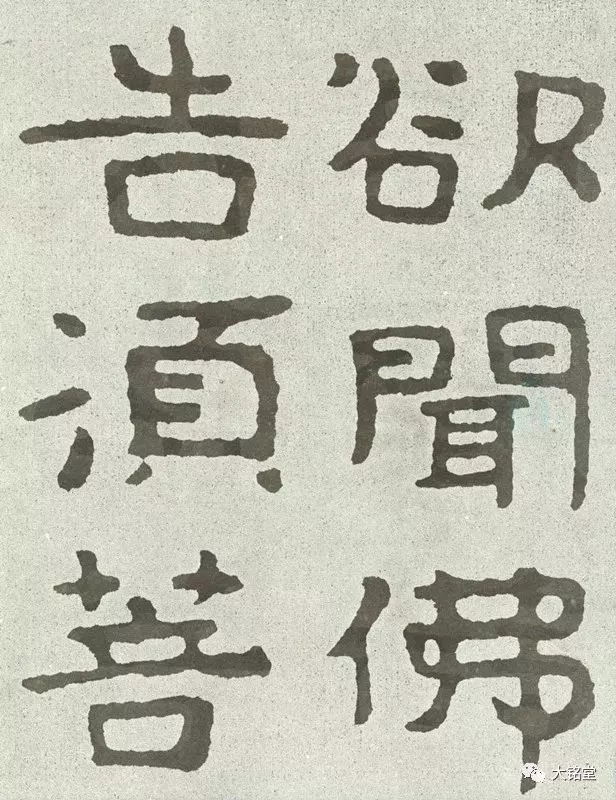 欲聞佛
告須菩
大铭堂